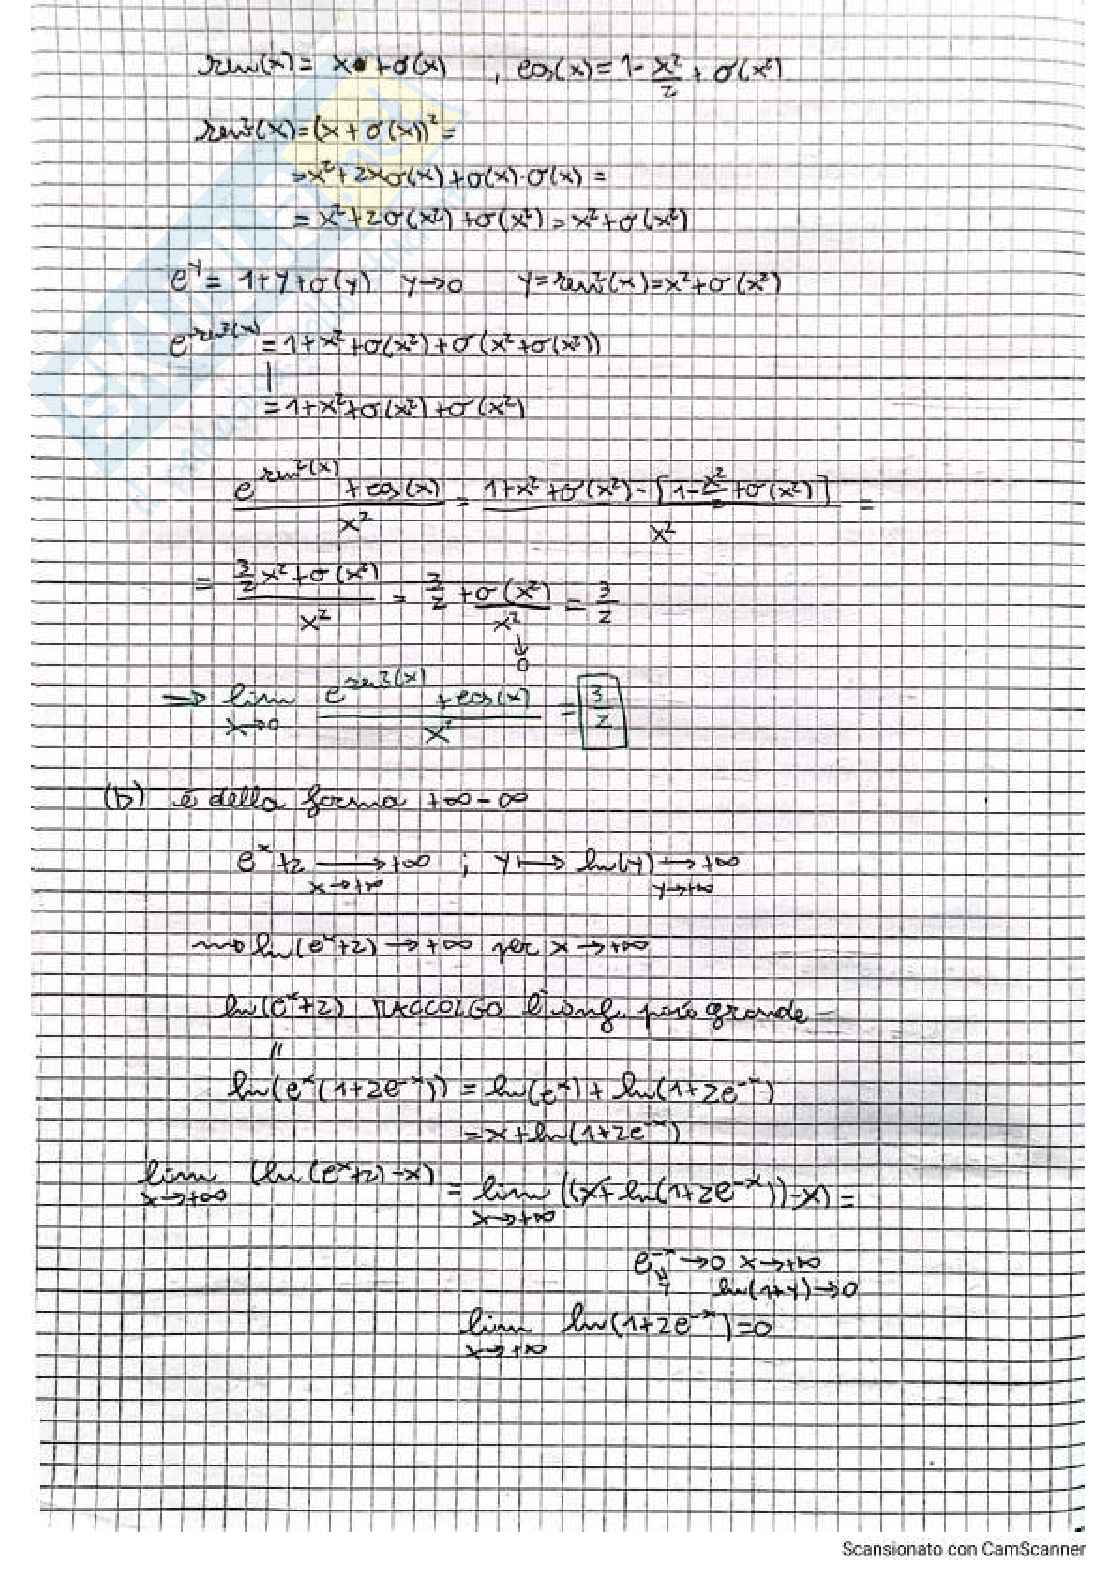 sen(x) = x + σ(x) , cos(x) = 1 - x²/2 + σ(x²)
sen²(x) = (x + σ(x))² =
= x² + 2xσ(x) + σ(x)·σ(x) =
= x² + 2σ(x²) + σ(x²) = x² + σ(x²)
e^y = 1 + y + σ(y) y→0 y = sen²(x) = x² + σ(x²)
e^sen²(x) = 1 + x² + σ(x²) + σ(x² + σ(x²))
= 1 + x² + σ(x²) + σ(x²)
(e^sen²(x) + cos(x))/x² = (1 + x² + σ(x²) - [1 - x²/2 + σ(x²)])/x² =
= (3/2 x² + σ(x²))/x² = 3/2 + σ(x²)/x² = 3/2
↓
0
⇒ lim x→0 (e^sen²(x) + cos(x))/x² = 3/2
(b) è della forma +∞-∞
e^x + 2 → +∞ x→+∞ ; y ↦ ln(y) → +∞ y→+∞
ln(e^x+2) → +∞ per x → +∞
ln(e^x+2) RACCOLGO l'inf. più grande
"
ln(e^x(1+2e^-x)) = ln(e^x) + ln(1+2e^-x)
= x + ln(1+2e^-x)
lim x→+∞ (ln(e^x+2)-x) = lim x→+∞ ((x+ln(1+2e^-x))-x) =
e^-x → 0 x→+∞
y ln(1+y)→0
lim x→+∞ ln(1+2e^-x) = 0
Scansionato con CamScanner